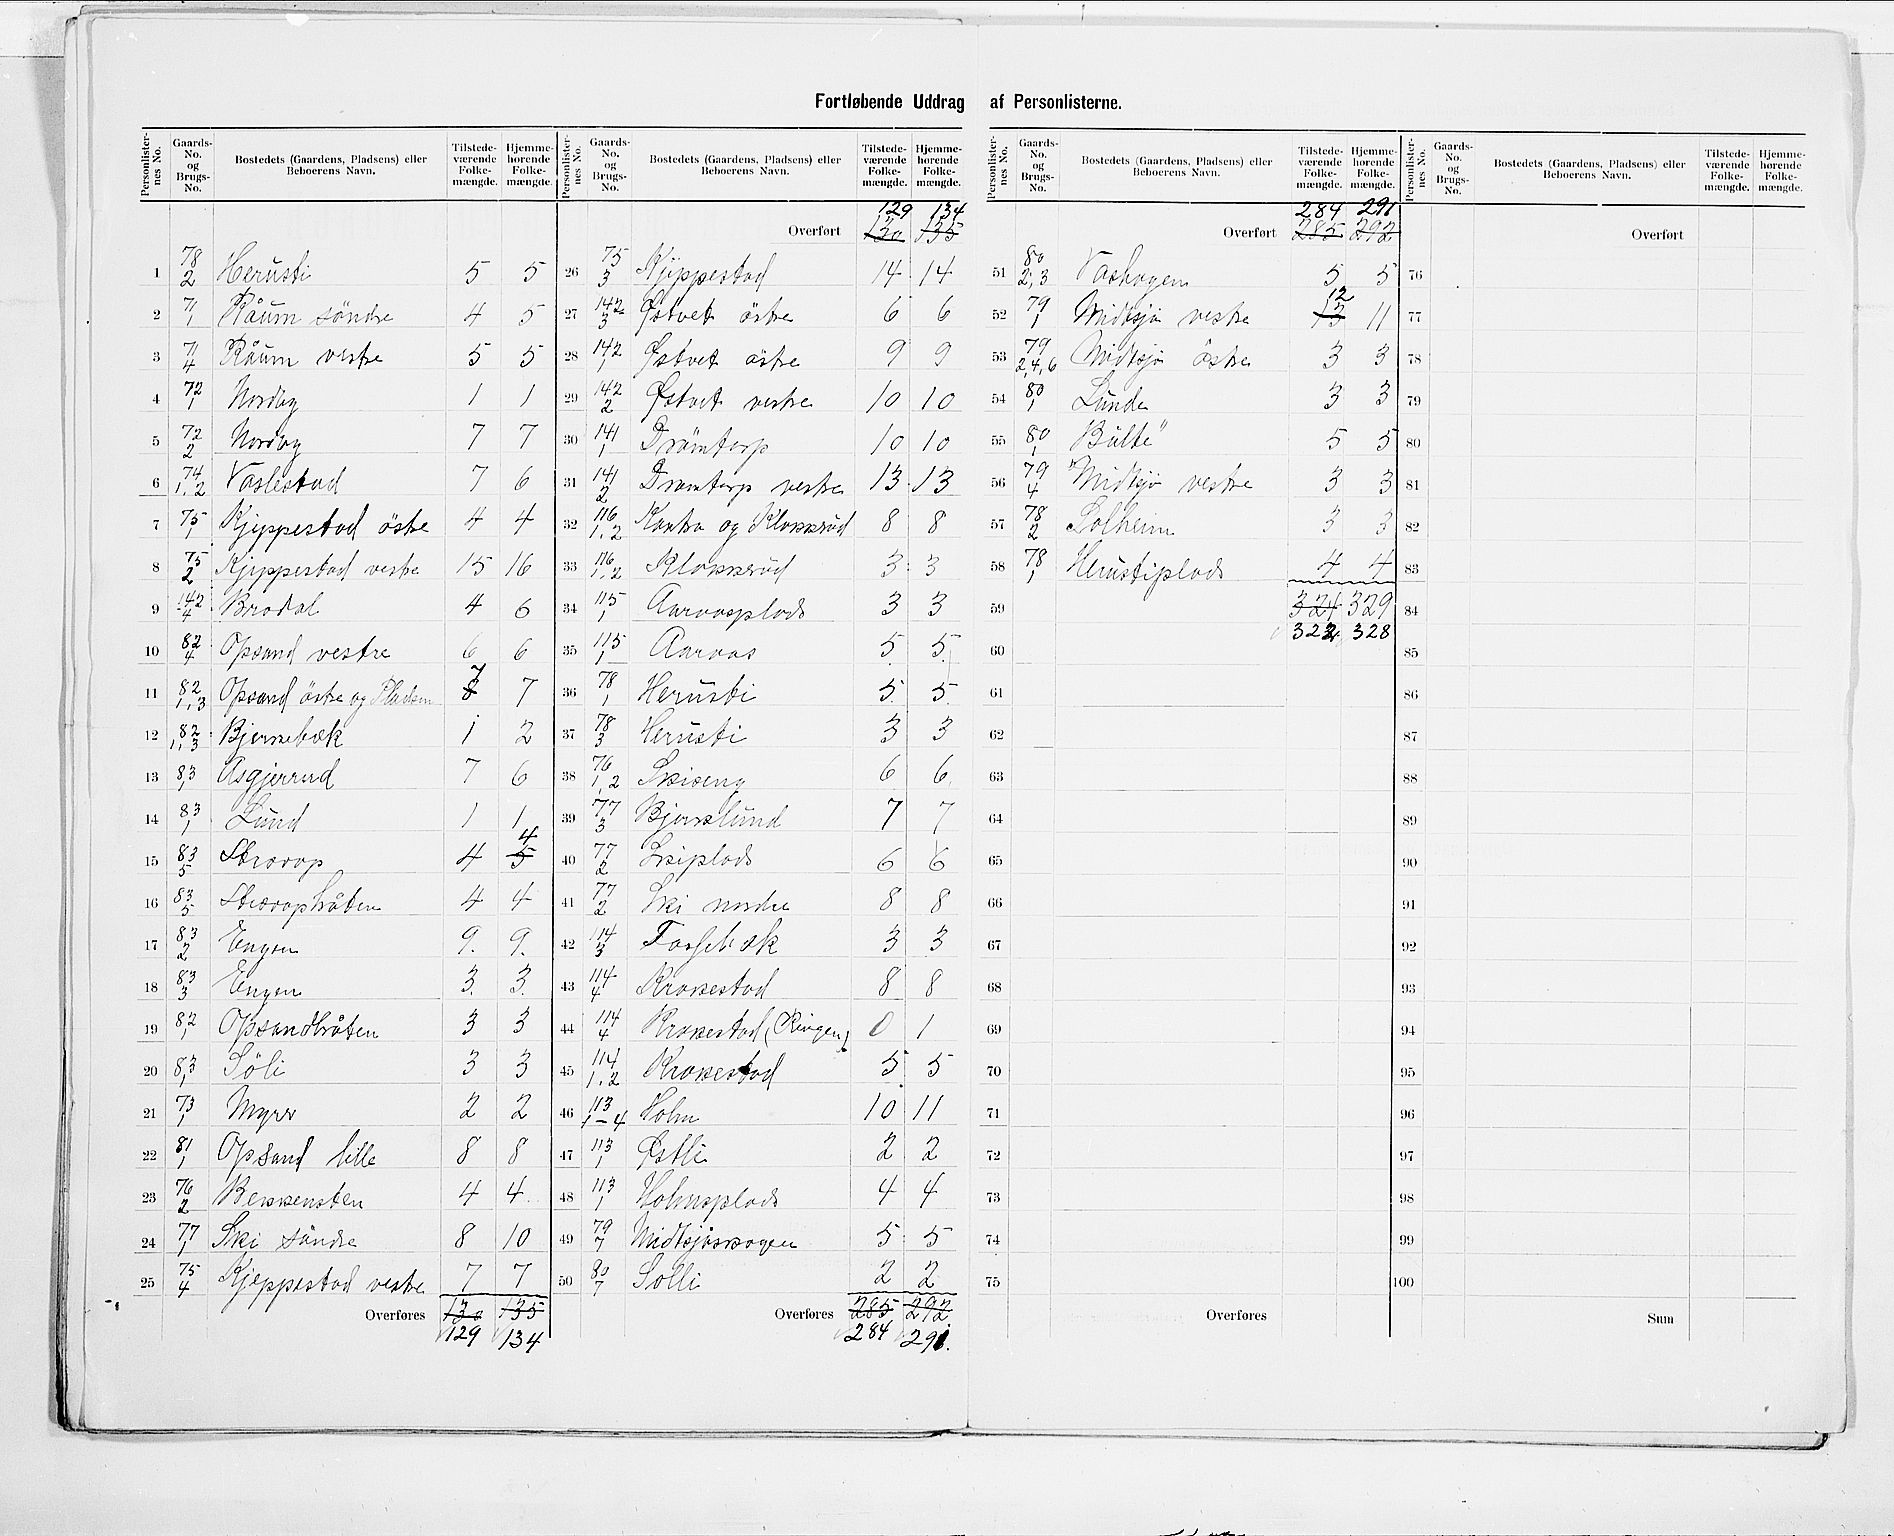 Fortløbende Uddrag af Personlisterne.
Personlisternes No. | Gaards-No. og Brugs-No. | Bostedets (Gaardens, Pladsens) eller Beboerens Navn. | Tilstedeværende Folkemængde. | Hjemmehørende Folkemængde.
1 78/2 Herusti 5 5
2 71/1 Råum söndre 4 5
3 71/4 Råum vestre 5 5
4 72/1 Nordby 1 1
5 72/2 Nordby 7 7
6 74/1,2 Vaslestad 7 6
7 75/1 Kjeppestad östre 4 4
8 75/2 Kjeppestad vestre 15 16
9 142/4 Brodal 4 6
10 82/4 Opsand vestre 6 6
11 82/1,3 Opsand östre og Pladsen 8 7 7
12 82/1,3 Bjernebæk 1 2
13 83/1 Asgjerrud 7 6
14 83/1 Lund 1 1
15 83/5 Strorop 4 5 4
16 83/5 Strorophråten 4 4
17 83/2 Engen 9. 9.
18 83/3 Engen 3. 3.
19 82/1 Opsandbråten 3 3
20 83/1 Söli 3 3
21 73/1 Myrer 2 2
22 81/1 Opsand lille 8 8
23 76/2 Bekkensten 4 4
24 77/1 Ski söndre 8 10
25 75/4 Kjeppestad vestre 7 7
Overføres 130 135
129 134
Overført 129 134
130 135
26 75/3 Kjeppestad 14 14
27 142/3 Østvet östre 6 6
28 142/1 Østvet östre 9 9
29 142/2 Østvet vestre 10 10
30 141/1 Drömtorp 10 10
31 141/2 Drömtorp vestre 13 13
32 116/1,2 Kontra og Klokkerud 8 8
33 116/1,2 Klokkerud 3 3
34 115/1 Aaraasplads 3 3
35 115/1 Aaraas 5 5.
36 78/1 Herusti 5. 5.
37 78/3 Herusti 3 3
38 76/1,2 Skiseng 6 6
39 77/3 Bjerkelund 7 7
40 77/2 Skiplads 6 6
41 77/2 Ski nordre 8 8
42 114/3 Forfebæk 3 3
43 114/4 Krokestad 8 8
44 114/4 Krokestad (Ringen) 0 1
45 114/1,2 Krokestad 5 5
46 113/1-4 Holm 10 11
47 113/1 Østli 2 2
48 113/1 Holmsplads 4 4
49 79/7 Midtsjöskogen 5 5
50 80/7 Solli 2 2
Overføres 285 292
284 291.
Overført 284 291
285 292
51 80/2,3 Vashogen 5 5
52 79/1 Midtsjö vestre 13 12 11
53 79/2,4,6 Midtsjö östre 3 3
54 80/1 Lunde 3 3
55 80/1 Bülte 5 5
56 79/4 Midtsjö vestre 3 3
57 78/2 Solheim 3 3
58 78/1 Herustiplads 4 4
59 324 329
322 328
60
61
62
63
64
65
66
67
68
69
70
71
72
73
74
75
Overføres
Overført
76
77
78
79
80
81
82
83
84
85
86
87
88
89
90
91
92
93
94
95
96
97
98
99
100
Sum